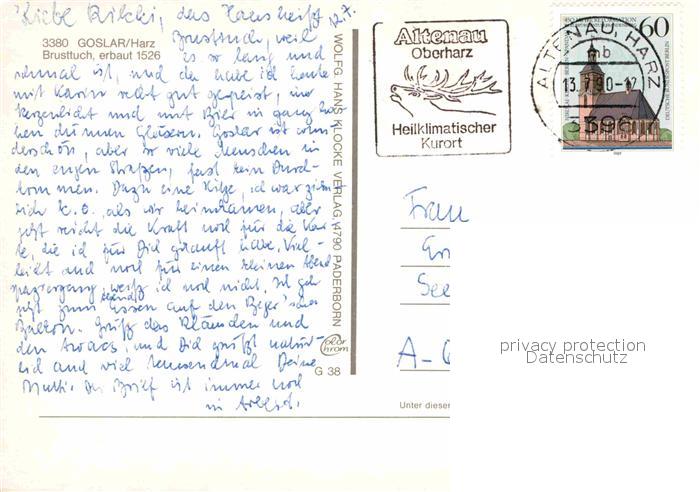 Liebe Rikki, das Haus heißt 12.7.
3380 GOSLAR/Harz
Brusttuch, erbaut 1526
Brusttuch, weil
es so lang und
schmal ist, und da habe ich heute
mit Karin sehr gut gespeist, bei
Kerzenlicht und mit Bier in ganz ho-
hen dünnen Gläsern. Goslar ist wun-
derschön, aber so viele Menschen in
den engen Straßen, fast kein Durch-
kommen. Dazu eine Hitze, ich war ziem-
lich k.o., als wir heimkamen, aber
jetzt reicht die Kraft noch für die Kar-
te, die ich für Dich gekauft habe. Viel-
leicht auch noch für einen kleinen Abend-
spaziergang, weiß ich noch nicht. Ich geh
jetzt zum Essen auf den
Balkon. Grüß das und
den und Dich grüßt natür-
lich auch viel tausendmal Deine
Mutti. Der Brief ist immer noch
in Arbeit.
WOLFG. HANS KLOCKE VERLAG, 4790 PADERBORN
color
chrom
G 38
Altenau
Oberharz
Heilklimatischer
Kurort
ALTENAU, HARZ
mb
13.7.90-12
3396
60
Frau
See
A-
Unter dieser
privacy protection
Datenschutz